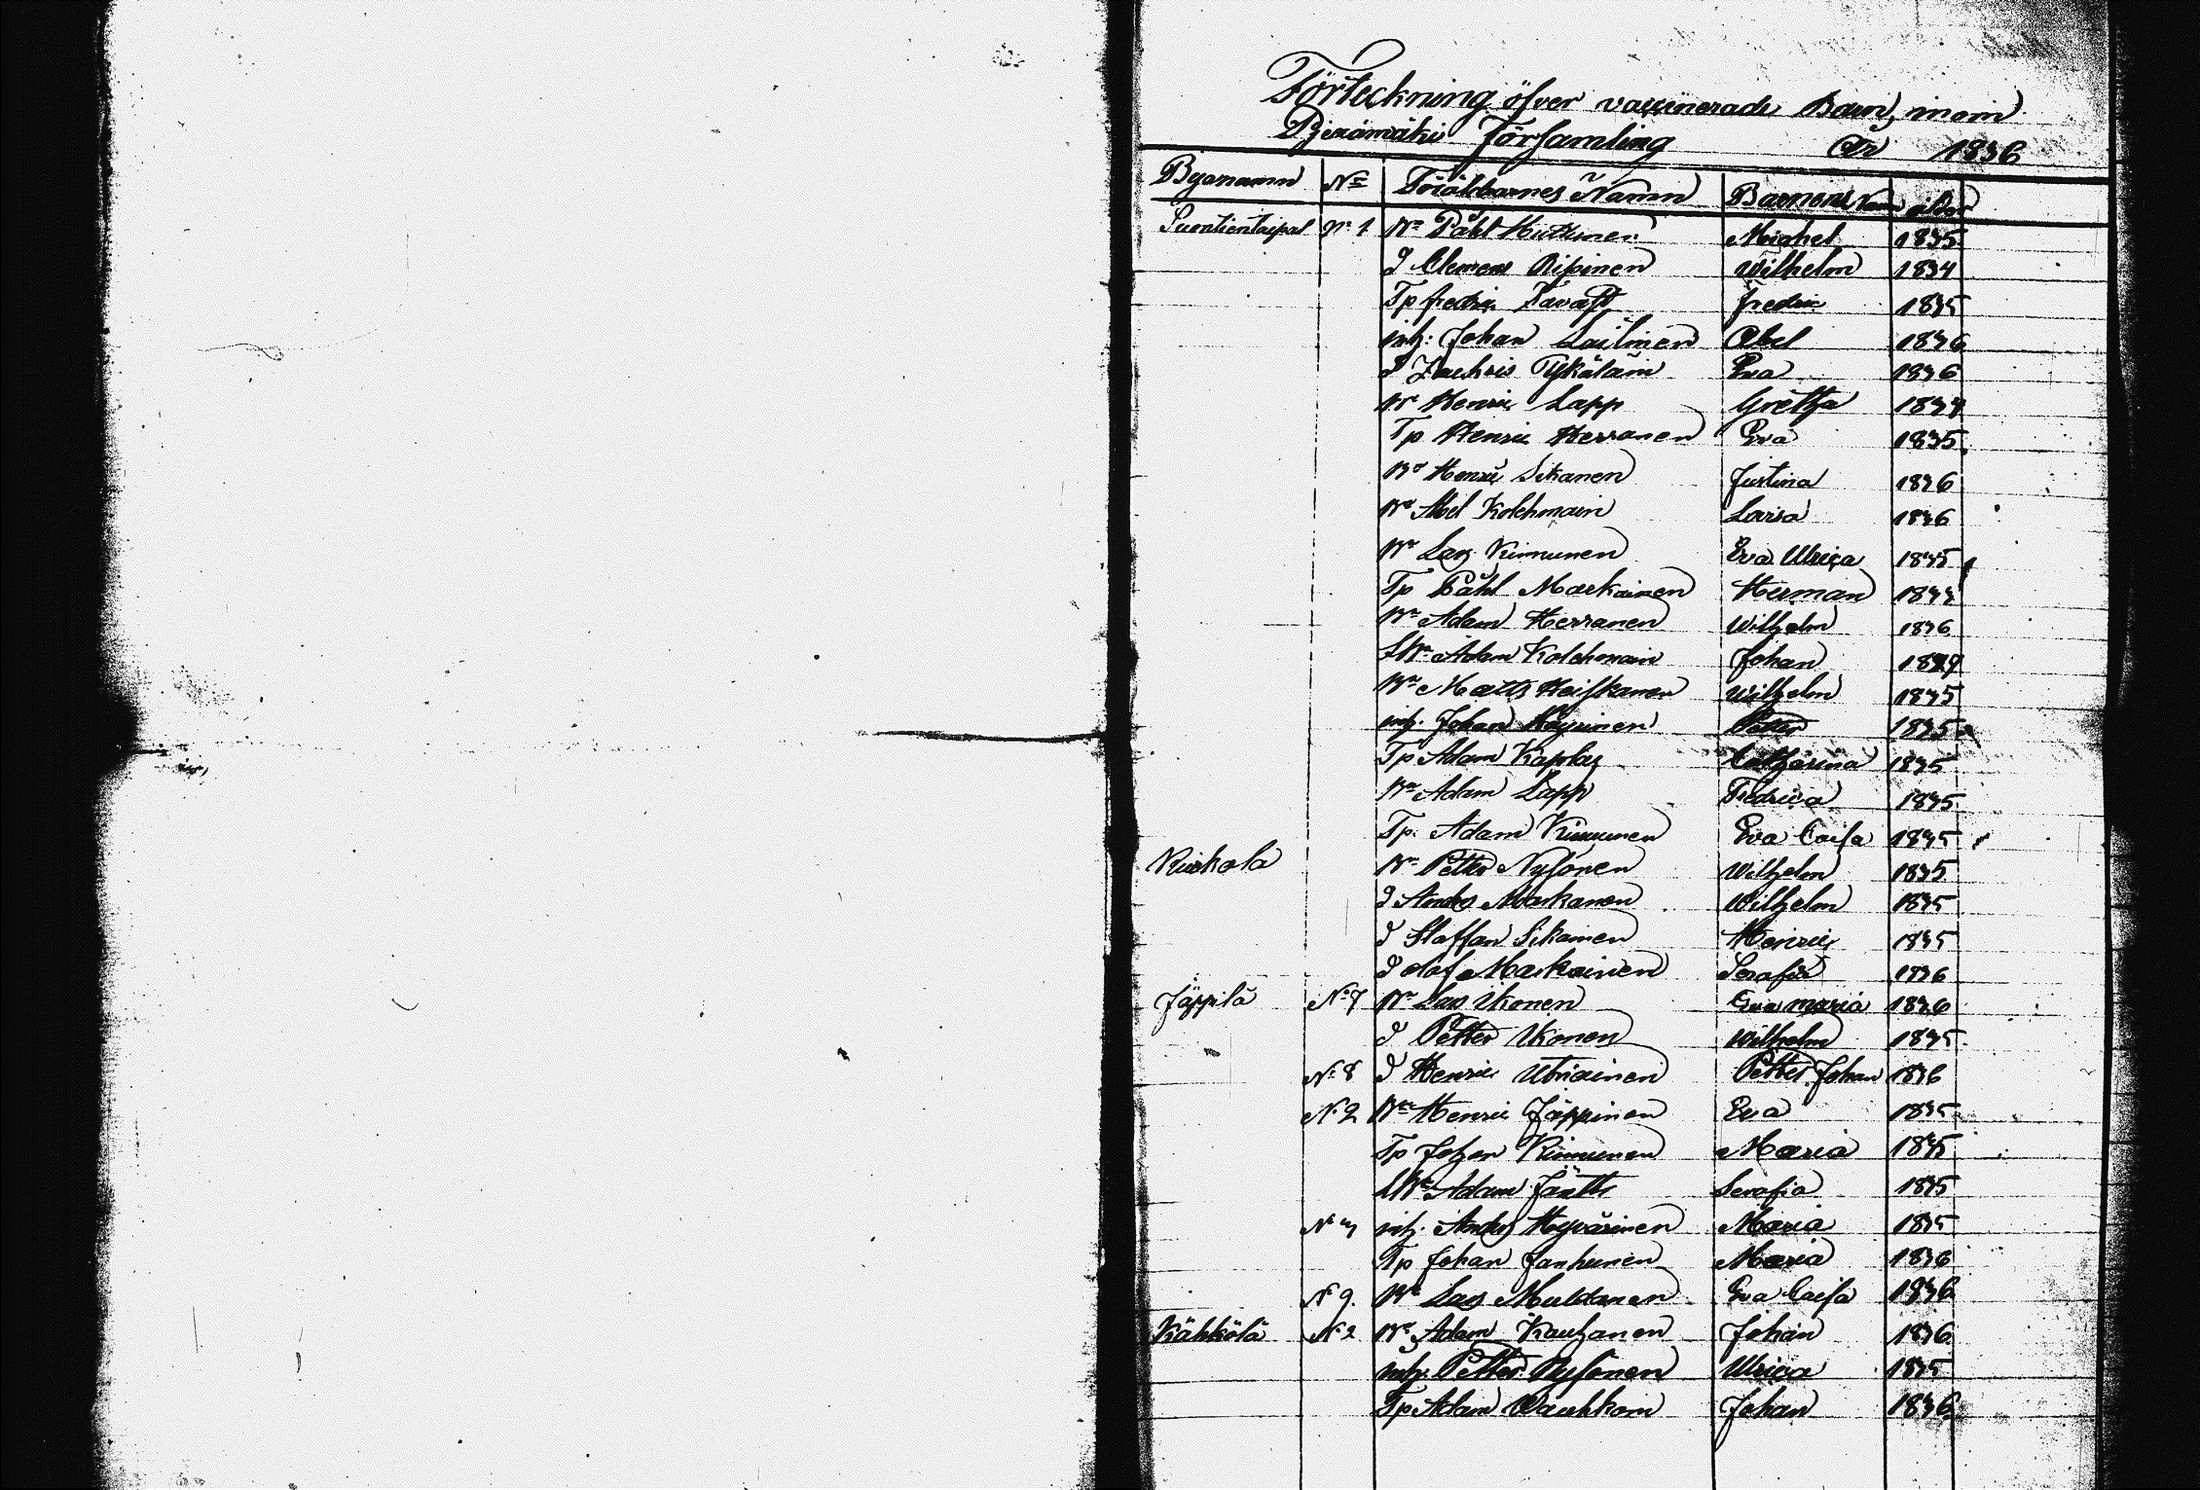 Förteckning öfver vaccinerade Barn, inom
Pjexämäki Församling År 1836
Byarnamn No Föräldrarnes Namn Barnens Namn ålder
Suontientaipal No 1 Bn Påhl Huttunen Michel 1835
D Clemens Pipinen Wilhelm 1834
Tp fredric Kavast fredric 1835
inh: Johan Lailinen Abel 1836
D Zachris Tyskälain Eva 1836
Bn Henric Lapp Gretha 1834
Tp Henric Herranen Eva 1835
Bn Henric Sikanen Justina 1836
Bn Abel Kolehmain Lovisa 1836
Bn Lars Kinnunen Eva Ulrica 1835
Tp Påhl Markainen Herman 1833
Bn Adam Herranen Wilhelm 1836
LBn Adam Kolehmain Johan 1829
Bn Matts Heiskanen Wilhelm 1835
inh. Johan Häyrinen Petter 1835
Tp Adam Kaplas Catharina 1835
Bn Adam Lapp Fredrica 1835
Tp. Adam Kinnunen Eva Caisa 1835
Kiukola Bn Petter Nysönen Wilhelm 1835
D Anders Markanen Wilhelm 1835
D Staffan Sikainen Henric 1835
D olof Markainen Serafia 1836
Jäppilä No 7 Bn Lars Ikonen Eva maria 1836
D Petter Ikonen Wilhelm 1835
No 8 D Henric Utriainen Petter Johan 1836
No 2 Bn Henric Jäppinen Eva 1835
Tp Johan Kinnunen Maria 1835
LBn Adam Jäntti Serafia 1835
No 3 inh. Anders Hyvärinen Maria 1835
Tp Johan Janhunen Maria 1836
No 9. Bn Lars Muldanen Eva Caisa 1836
Kähkölä No 2 Bn Adam Kauhanen Johan 1836
inh. Petter Nysönen Ulrica 1835
Tp Adam Wauhkon Johan 1836